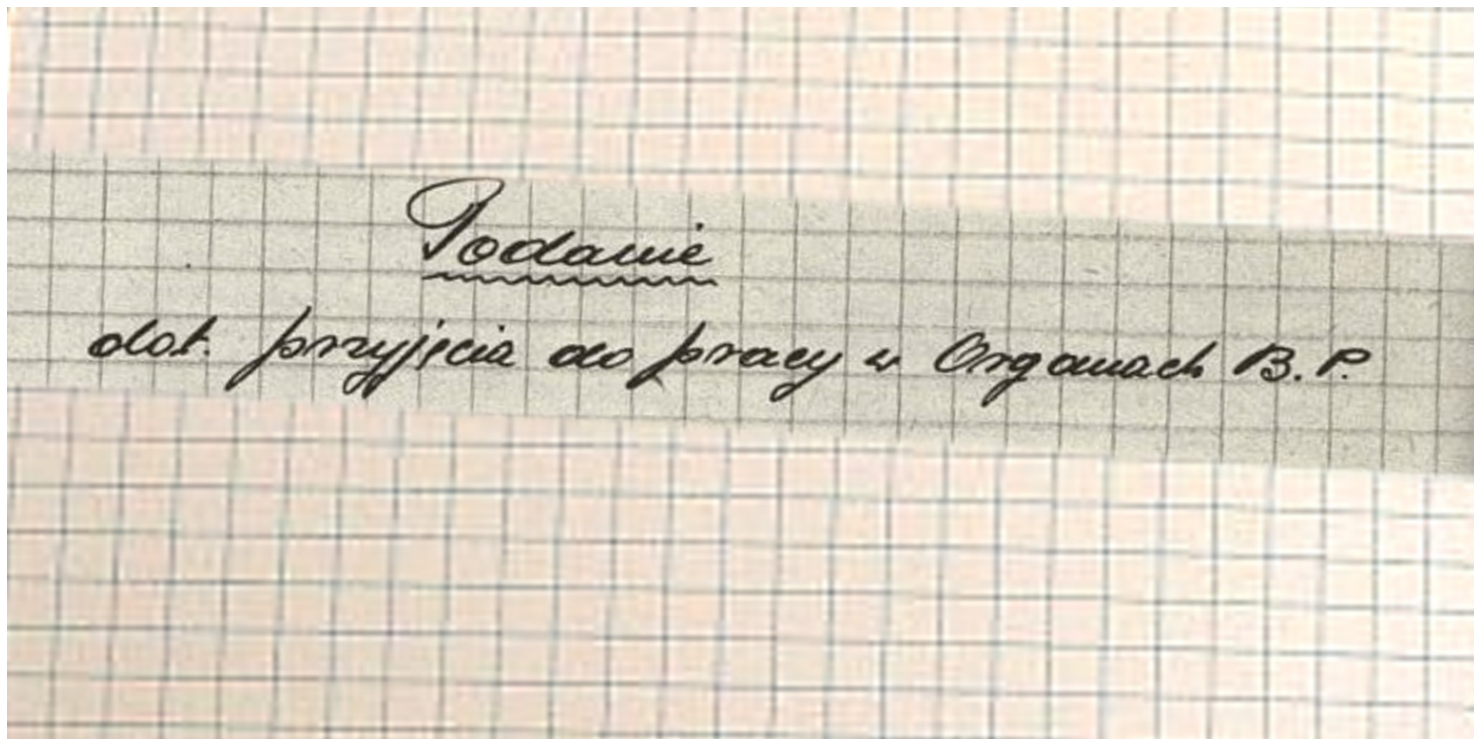 Podanie
dot. przyjęcia do pracy w Organach B.P.